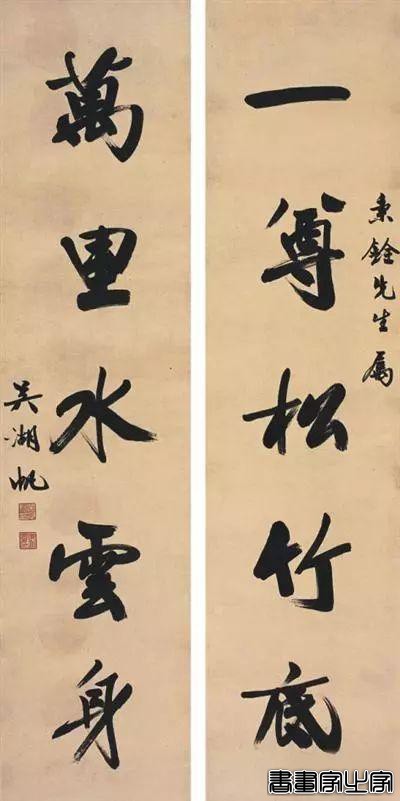 一尊松竹底
秉銓先生属
萬里水雲身
吴湖帆
書畫家之家